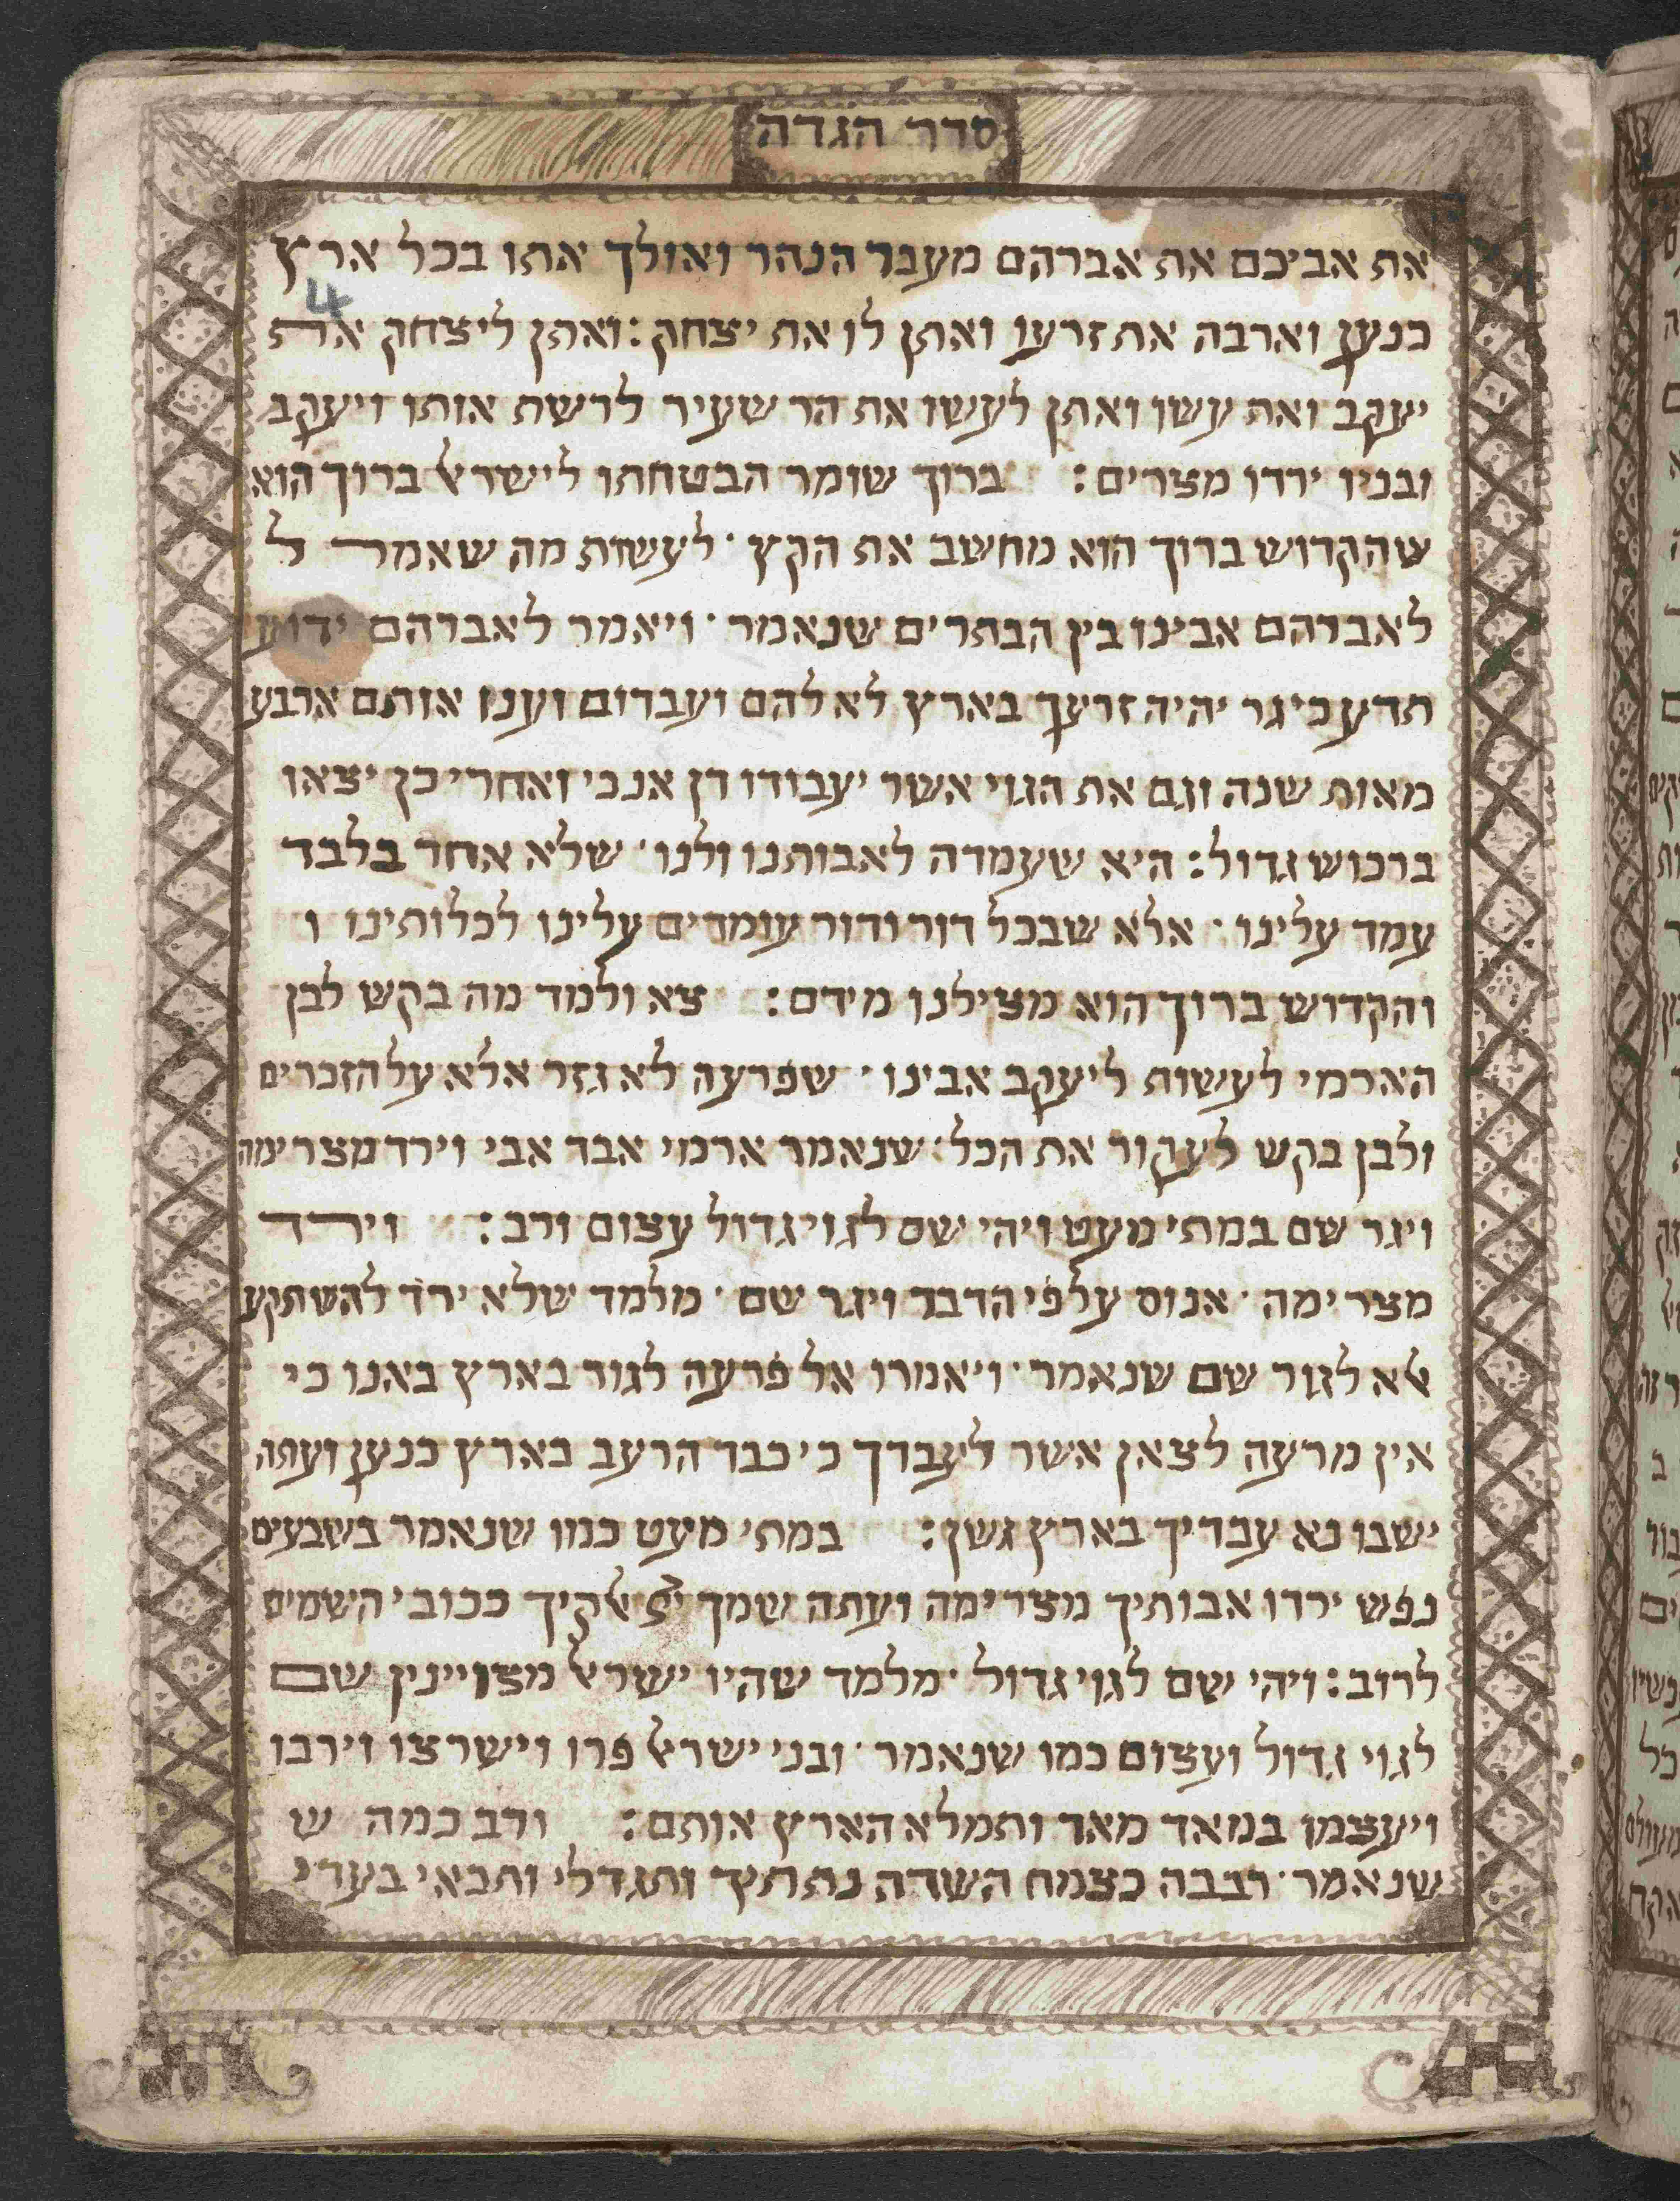 סדר הגדה
את אביכם את אברהם מעבר הנהר ואולך אתו בכל ארץ
4
כנען וארבה את זרעו ואתן לו את יצחק: ואתן ליצחק את
יעקב ואת עשו ואתן לעשו את הר שעיר לרשת אותו ויעקב
ובניו ירדו מצרים: ברוך שומר הבטחתו לישראל ברוך הוא
שהקדוש ברוך הוא מחשב את הקץ · לעשות מה שאמר ל
לאברהם אבינו בין הבתרים שנאמר · ויאמר לאברהם ידוע
תדע כי גר יהיה זרעך בארץ לא להם ועבדום וענו אותם ארבע
מאות שנה וגם את הגוי אשר יעבודו דן אנכי ואחרי כן יצאו
ברכוש גדול: היא שעמדה לאבותנו ולנו · שלא אחד בלבד
עמד עלינו · אלא שבכל דור ודור עומדים עלינו לכלותינו ו
והקדוש ברוך הוא מצילנו מידם: צא ולמד מה בקש לבן
הארמי לעשות ליעקב אבינו · שפרעה לא גזר אלא על הזכרים
ולבן בקש לעקור את הכל · שנאמר ארמי אבד אבי וירד מצרימה
ויגר שם במתי מעט ויהי שם לגוי גדול עצום ורב: וירד
מצרימה · אנוס על פי הדבר ויגר שם · מלמד שלא ירד להשתקע
אלא לגור שם שנאמר · ויאמרו אל פרעה לגור בארץ באנו כי
אין מרעה לצאן אשר לעבדך כי כבד הרעב בארץ כנען ועתה
ישבו נא עבדיך בארץ גשן: במתי מעט כמו שנאמר בשבעים
נפש ירדו אבותיך מצרימה ועתה שמך אלקיך ככוכי השמים
לרוב: ויהי שם לגוי גדול · מלמד שהיו ישראל מצויינין שם
לגוי גדול ועצום כמו שנאמר · ובני ישראל פרו וישרצו וירבו
ויעצמו במאד מאד ותמלא הארץ אותם: ורב כמה ש
שנאמר · רבבה כצמח השדה נתתיך ותגדלי ותבאי בעדי